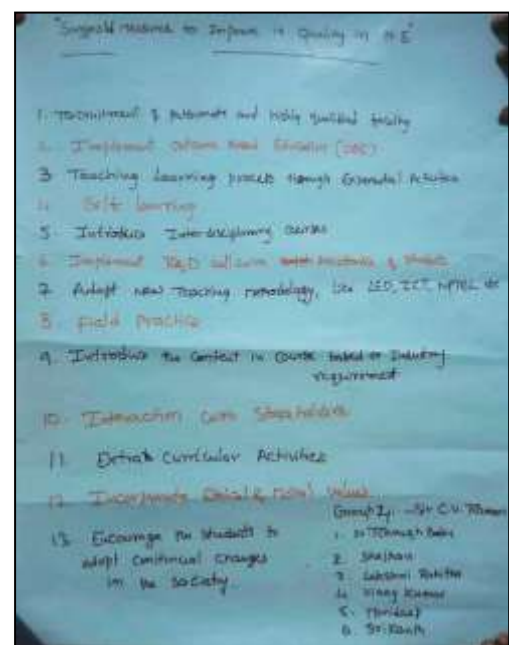 "Suggested Measures to Improve in Quality in HE"
1. Recruitment of Passionate and highly qualified faculty
2. Implement Outcome Based Education (OBE)
3 Teaching Learning process through Activities
4. Self learning
5. Introduce Interdisciplinary courses
6. Implement R&D culture
7. Adopt new Teaching methodology, like LED, ICT, NPTEL etc
8. Field Practice
9. Introduce the Content in Course based on Industry
requirement
10. Interaction with Stakeholders
11 Extra Curricular Activities
12. Incorporate & moral values
13. Encourage the students to
adopt continual changes
in the society.
Group IV: Sir C.V. Raman
1.
2. Shajhan
3. Lakshmi
4. Kumar
5.
6. Srikanth